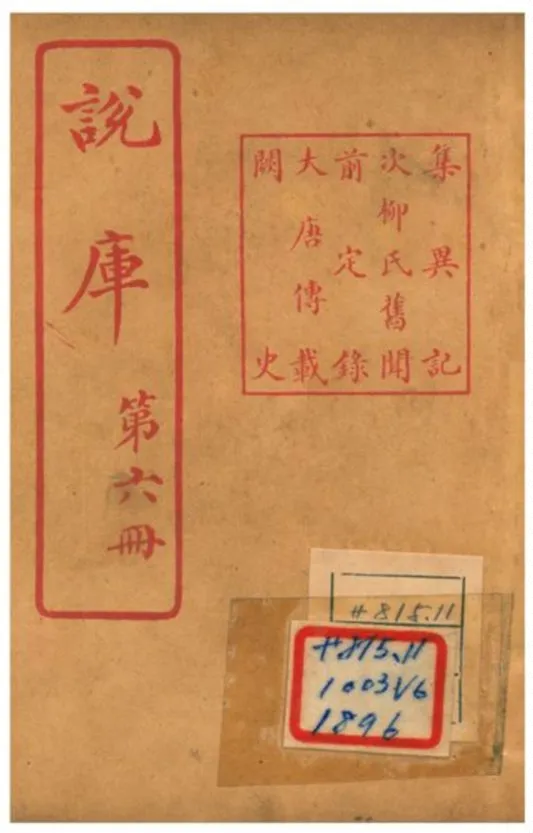 說庫 第六冊
集異記
次柳氏舊聞
前定錄
大唐傳載
闕史
#815.11
#815.11
1003V6
1896